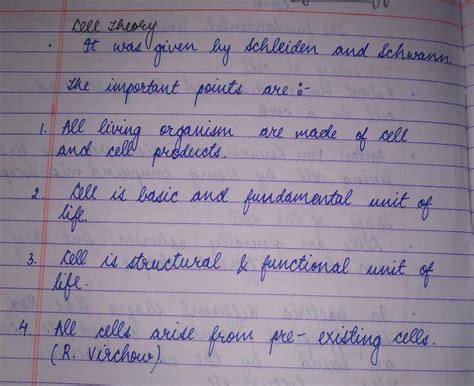 Cell Theory
. It was given by Schleiden and Schwann.
The important points are :-
1. All living organism are made of cell
and cell products.
2. Cell is basic and fundamental unit of
life.
3. Cell is structural & functional unit of
life.
4. All cells arise from pre-existing cells.
(R. Virchow)